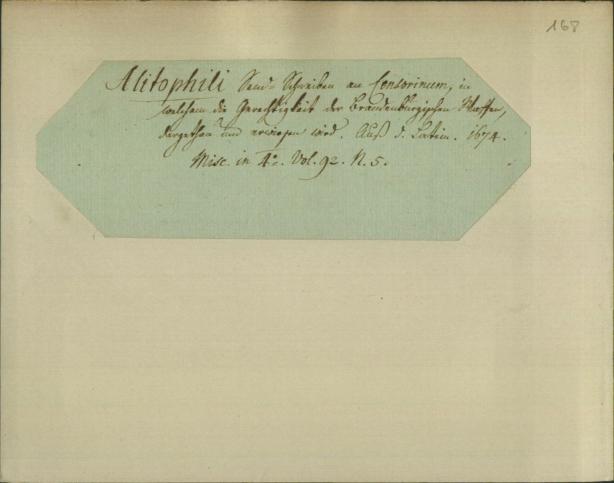 168
Alitophili Send-Schreiben an Censorinum, in
welchem die Gerechtigkeit der Brandenburgischen Waffen,
dargethan und erwiesen wird. Auß d. Latein. 1674.
Misc. in 4º. Vol. 92. N. 5.